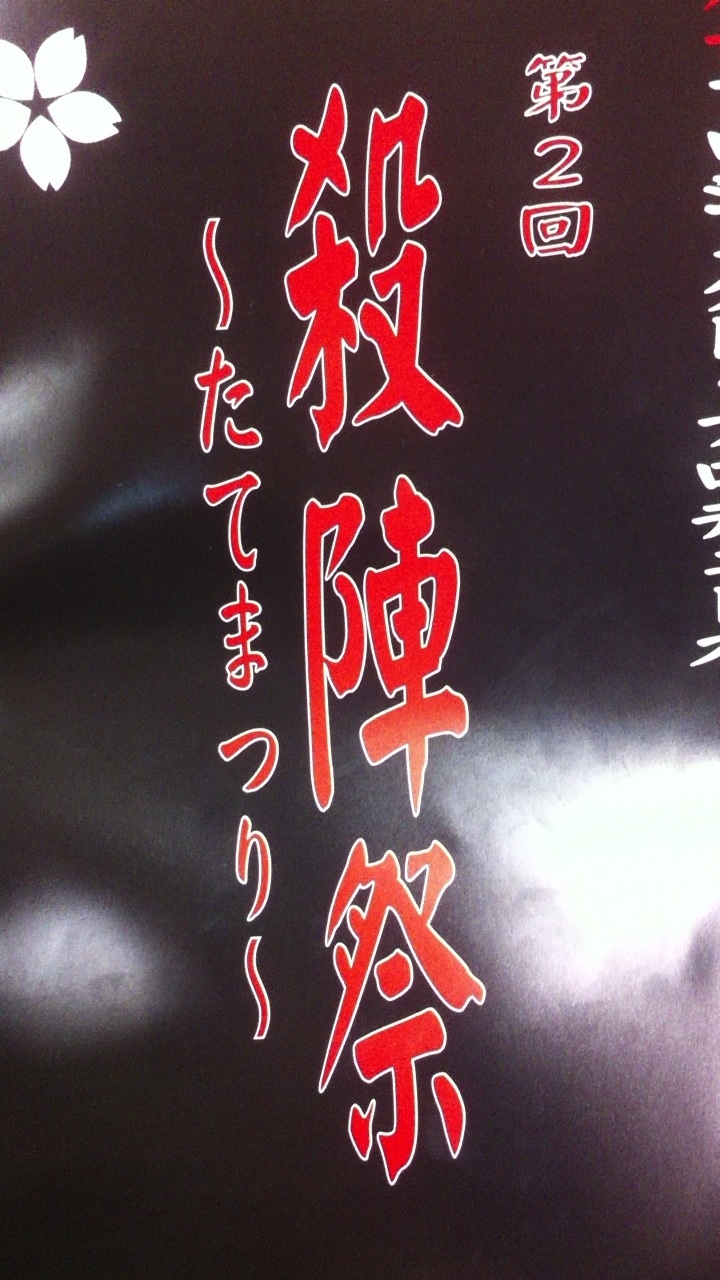 第2回
殺陣祭
～たてまつり～